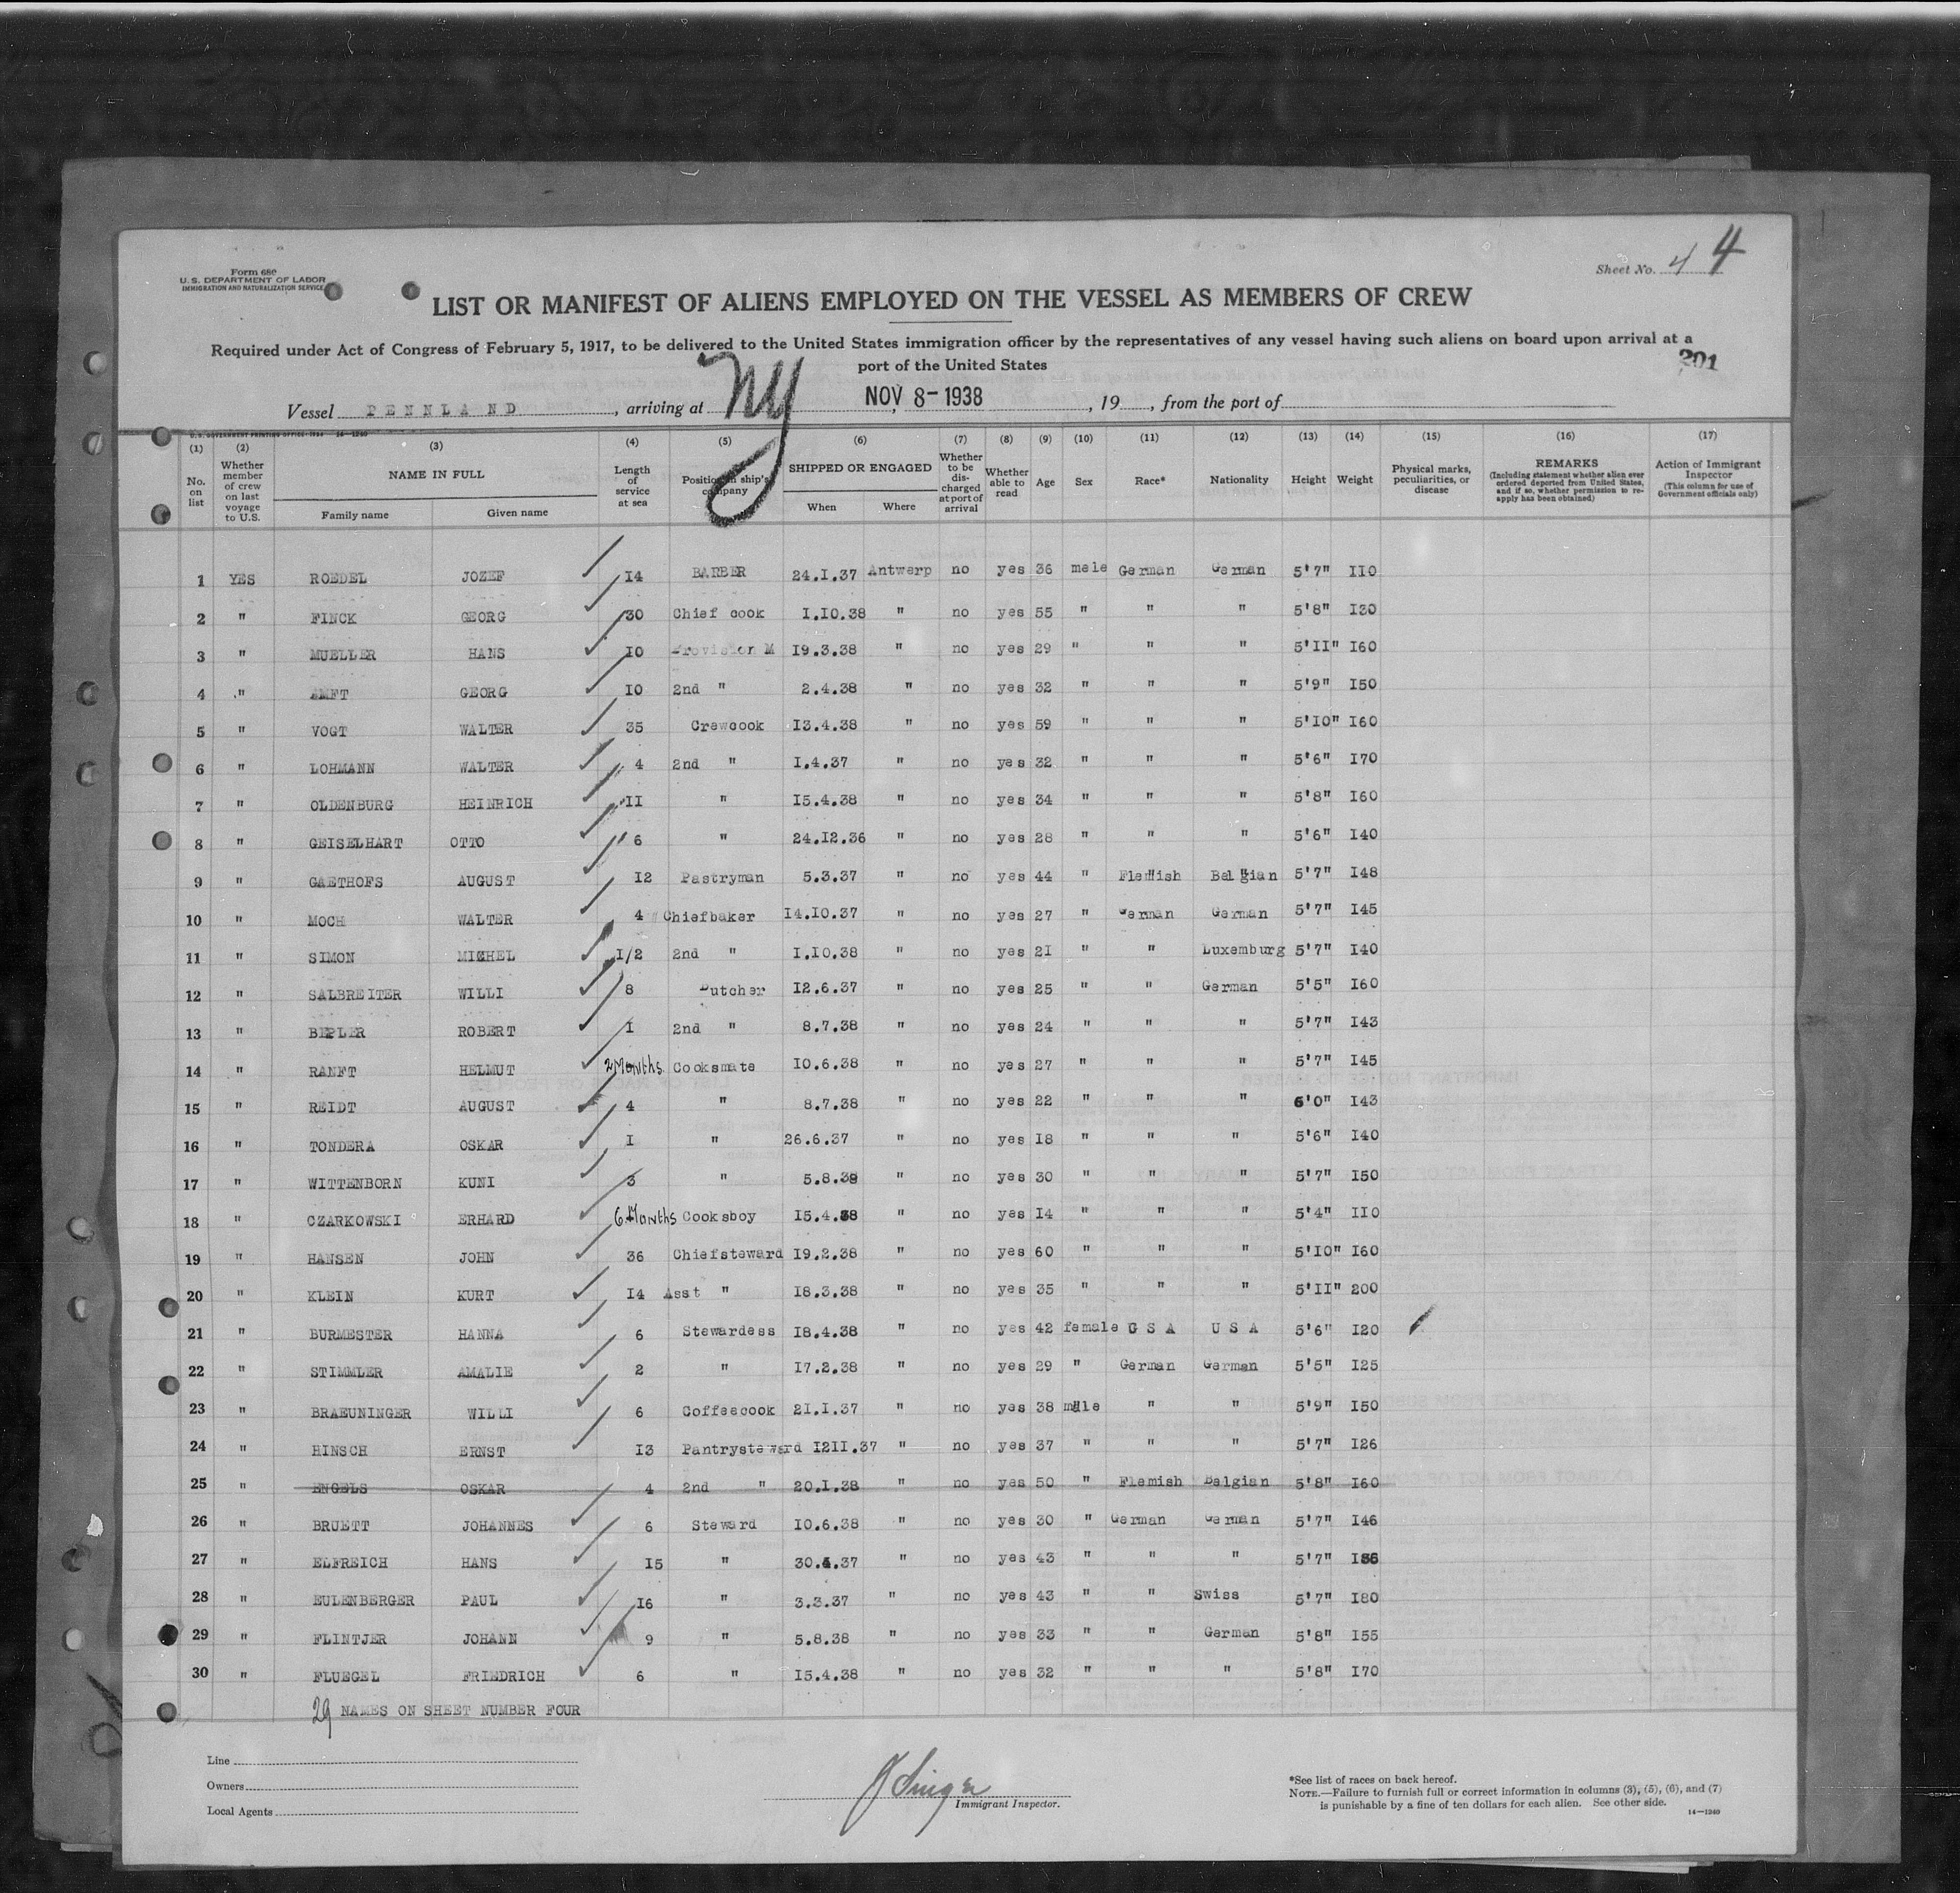 Form 680
U.S. DEPARTMENT OF LABOR
IMMIGRATION AND NATURALIZATION SERVICE
Sheet No. 4 4
LIST OR MANIFEST OF ALIENS EMPLOYED ON THE VESSEL AS MEMBERS OF CREW
Required under Act of Congress of February 5, 1917, to be delivered to the United States immigration officer by the representatives of any vessel having such aliens on board upon arrival at a
port of the United States
201
Vessel PENNLAND, arriving at NY, NOV 8-1938, 19, from the port of
U.S. GOVERNMENT PRINTING OFFICE 14-1240
(1) (2) (3) (4) (5) (6) (7) (8) (9) (10) (11) (12) (13) (14) (15) (16) (17)
No. on list Whether member of crew on last voyage to U.S. NAME IN FULL Family name Given name Length of service at sea Position in ship's company SHIPPED OR ENGAGED When Where Whether to be discharged at port of arrival Whether able to read Age Sex Race* Nationality Height Weight Physical marks, peculiarities, or disease REMARKS (Including statement whether alien ever ordered deported from United States, and if so, whether permission to reapply has been obtained) Action of Immigrant Inspector (This column for use of Government officials only)
1 YES ROEDEL JOZEF 14 BARBER 24.1.37 Antwerp no yes 36 male German German 5'7" 110
2 " FINCK GEORG 30 Chief cook 1.10.38 " no yes 55 " " " 5'8" 130
3 " MUELLER HANS 10 Provision M 19.3.38 " no yes 29 " " " 5'11" 160
4 " AMFT GEORG 10 2nd " 2.4.38 " no yes 32 " " " 5'9" 150
5 " VOGT WALTER 35 Crewcook 13.4.38 " no yes 59 " " " 5'10" 160
6 " LOHMANN WALTER 4 2nd " 1.4.37 " no yes 32 " " " 5'6" 170
7 " OLDENBURG HEINRICH 11 " 15.4.38 " no yes 34 " " " 5'8" 160
8 " GEISELHART OTTO 6 " 24.12.36 " no yes 28 " " " 5'6" 140
9 " GAETHOFS AUGUST 12 Pastryman 5.3.37 " no yes 44 " Flemish Belgian 5'7" 148
10 " MOCH WALTER 4 Chiefbaker 14.10.37 " no yes 27 " German German 5'7" 145
11 " SIMON MICHEL 1/2 2nd " 1.10.38 " no yes 21 " " Luxemburg 5'7" 140
12 " SALBREITER WILLI 8 Butcher 12.6.37 " no yes 25 " " German 5'5" 160
13 " BEPLER ROBERT 1 2nd " 8.7.38 " no yes 24 " " " 5'7" 143
14 " RANFT HELMUT 2 Months Cooksmate 10.6.38 " no yes 27 " " " 5'7" 145
15 " REIDT AUGUST 4 " 8.7.38 " no yes 22 " " " 6'0" 143
16 " TONDERA OSKAR 1 " 26.6.37 " no yes 18 " " " 5'6" 140
17 " WITTENBORN KUNI 3 " 5.8.38 " no yes 30 " " " 5'7" 150
18 " CZARKOWSKI ERHARD 6 Months Cooksboy 15.4.38 " no yes 14 " " " 5'4" 110
19 " HANSEN JOHN 36 Chiefsteward 19.2.38 " no yes 60 " " " 5'10" 160
20 " KLEIN KURT 14 Asst " 18.3.38 " no yes 35 " " " 5'11" 200
21 " BURMESTER HANNA 6 Stewardess 18.4.38 " no yes 42 female U S A U S A 5'6" 120
22 " STIMMLER AMALIE 2 " 17.2.38 " no yes 29 " German German 5'5" 125
23 " BRAEUNINGER WILLI 6 Coffeecook 21.1.37 " no yes 38 male " " 5'9" 150
24 " HINSCH ERNST 13 Pantrysteward 1211.37 " no yes 37 " " " 5'7" 126
25 " ENGELS OSKAR 4 2nd " 20.1.38 " no yes 50 " Flemish Belgian 5'8" 160
26 " BRUETT JOHANNES 6 Steward 10.6.38 " no yes 30 " German German 5'7" 146
27 " ELFREICH HANS 15 " 30.4.37 " no yes 43 " " " 5'7"
28 " EULENBERGER PAUL 16 " 3.3.37 " no yes 43 " " Swiss 5'7" 180
29 " FLINTJER JOHANN 9 " 5.8.38 " no yes 33 " " German 5'8" 155
30 " FLUEGEL FRIEDRICH 6 " 15.4.38 " no yes 32 " " " 5'8" 170
29 NAMES ON SHEET NUMBER FOUR
Line
Owners
Local Agents
J Singer
Immigrant Inspector.
*See list of races on back hereof.
NOTE.—Failure to furnish full or correct information in columns (3), (5), (6), and (7)
is punishable by a fine of ten dollars for each alien. See other side.
14-1240